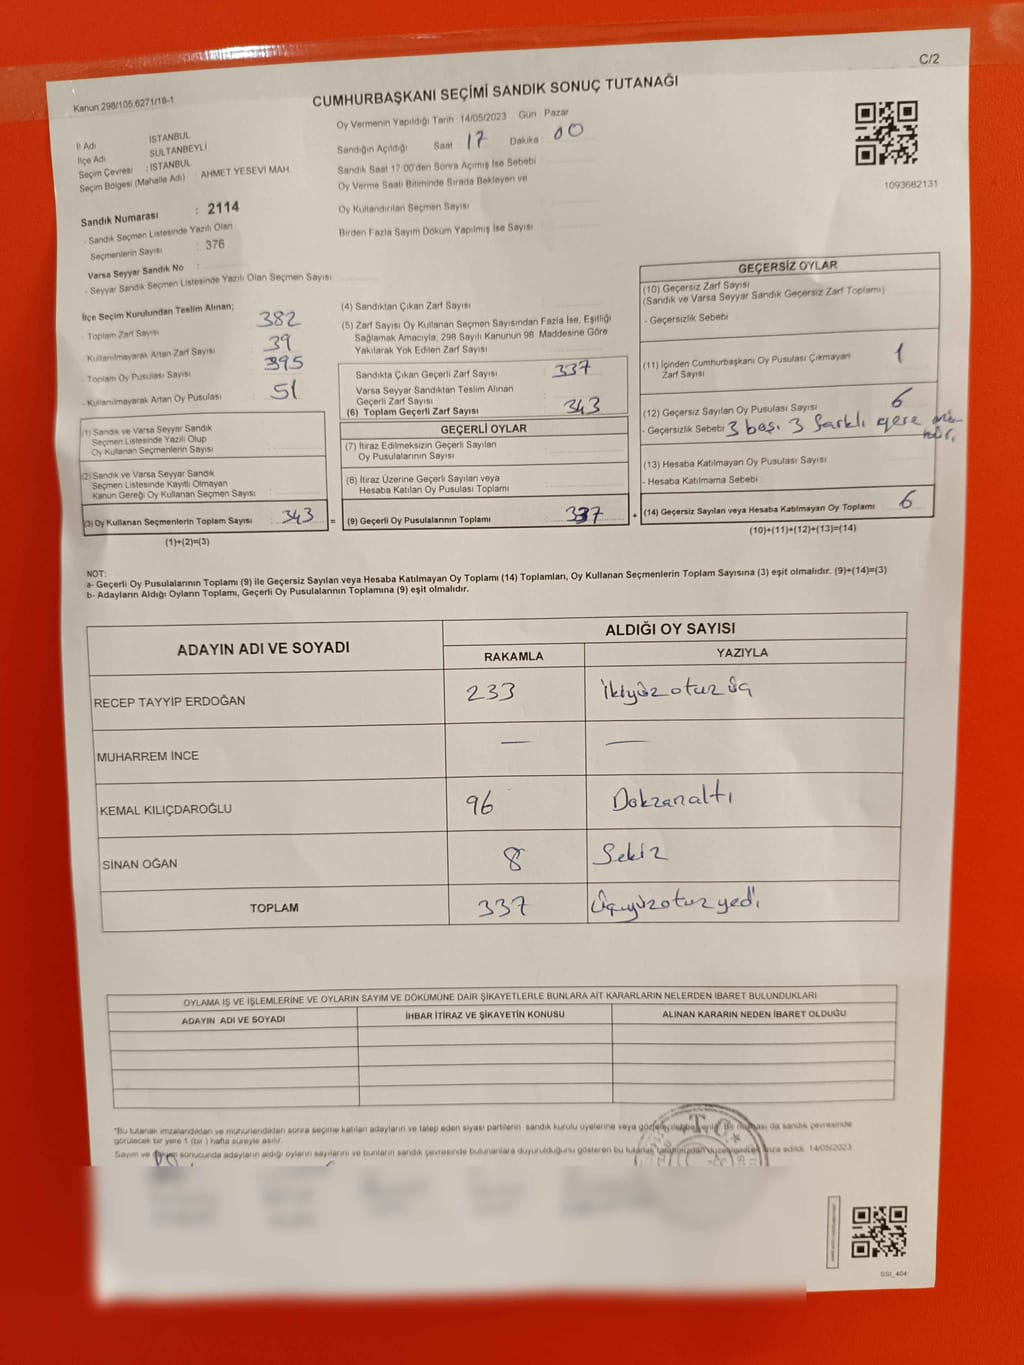 C/2
Kanun 298/105,6271/18-1
CUMHURBAŞKANI SEÇİMİ SANDIK SONUÇ TUTANAĞI
İl Adı İSTANBUL
İlçe Adı SULTANBEYLİ
Seçim Çevresi : İSTANBUL
Seçim Bölgesi (Mahalle Adı) : AHMET YESEVİ MAH.
Oy Vermenin Yapıldığı Tarih : 14/05/2023 Gün : Pazar
Sandığın Açıldığı Saat : 17 Dakika : 00
Sandık Saat 17:00'den Sonra Açımış İse Sebebi
Oy Verme Saati Bitiminde Sırada Bekleyen ve
Oy Kullandırılan Seçmen Sayısı
Birden Fazla Sayım Döküm Yapılmış İse Sayısı
1093682131
Sandık Numarası : 2114
- Sandık Seçmen Listesinde Yazılı Olan
Seçmenlerin Sayısı : 376
Varsa Seyyar Sandık No :
- Seyyar Sandık Seçmen Listesinde Yazılı Olan Seçmen Sayısı
İlçe Seçim Kurulundan Teslim Alınan;
- Toplam Zarf Sayısı 382
- Kullanılmayarak Artan Zarf Sayısı 39
- Toplam Oy Pusulası Sayısı 395
- Kullanılmayarak Artan Oy Pusulası 51
(1) Sandık ve Varsa Seyyar Sandık
Seçmen Listesinde Yazılı Olup
Oy Kullanan Seçmenlerin Sayısı
(2) Sandık ve Varsa Seyyar Sandık
Seçmen Listesinde Kayıtlı Olmayan
Kanun Gereği Oy Kullanan Seçmen Sayısı
(3) Oy Kullanan Seçmenlerin Toplam Sayısı 343 =
(1)+(2)=(3)
(4) Sandıktan Çıkan Zarf Sayısı
(5) Zarf Sayısı Oy Kullanan Seçmen Sayısından Fazla İse, Eşitliği
Sağlamak Amacıyla; 298 Sayılı Kanunun 98. Maddesine Göre
Yakılarak Yok Edilen Zarf Sayısı
Sandıkta Çıkan Geçerli Zarf Sayısı 337
Varsa Seyyar Sandıktan Teslim Alınan
Geçerli Zarf Sayısı
(6) Toplam Geçerli Zarf Sayısı 343
GEÇERLİ OYLAR
(7) İtiraz Edilmeksizin Geçerli Sayılan
Oy Pusulalarının Sayısı
(8) İtiraz Üzerine Geçerli Sayılan veya
Hesaba Katılan Oy Pusulası Toplamı
(9) Geçerli Oy Pusulalarının Toplamı 337 +
GEÇERSİZ OYLAR
(10) Geçersiz Zarf Sayısı
(Sandık ve Varsa Seyyar Sandık Geçersiz Zarf Toplamı)
- Geçersizlik Sebebi :
(11) İçinden Cumhurbaşkanı Oy Pusulası Çıkmayan
Zarf Sayısı 1
(12) Geçersiz Sayılan Oy Pusulası Sayısı 6
- Geçersizlik Sebebi 3 boş. 3 farklı yere
(13) Hesaba Katılmayan Oy Pusulası Sayısı
- Hesaba Katılmama Sebebi
(14) Geçersiz Sayılan veya Hesaba Katılmayan Oy Toplamı 6
(10)+(11)+(12)+(13)=(14)
NOT:
a- Geçerli Oy Pusulalarının Toplamı (9) ile Geçersiz Sayılan veya Hesaba Katılmayan Oy Toplamı (14) Toplamları, Oy Kullanan Seçmenlerin Toplam Sayısına (3) eşit olmalıdır. (9)+(14)=(3)
b- Adayların Aldığı Oyların Toplamı, Geçerli Oy Pusulalarının Toplamına (9) eşit olmalıdır.
ADAYIN ADI VE SOYADI
ALDIĞI OY SAYISI
RAKAMLA YAZIYLA
RECEP TAYYİP ERDOĞAN 233 İkiyüzotuzüç
MUHARREM İNCE — —
KEMAL KILIÇDAROĞLU 96 Dokzanaltı
SİNAN OĞAN 8 Sekiz
TOPLAM 337 Üçyüzotuzyedi
OYLAMA İŞ VE İŞLEMLERİNE VE OYLARIN SAYIM VE DÖKÜMÜNE DAİR ŞİKAYETLERLE BUNLARA AİT KARARLARIN NELERDEN İBARET BULUNDUKLARI
ADAYIN ADI VE SOYADI İHBAR İTİRAZ VE ŞİKAYETİN KONUSU ALINAN KARARIN NEDEN İBARET OLDUĞU
"Bu tutanak imzalandıktan ve mühürlendikten sonra seçime katılan adayların ve talep eden siyasi partilerin sandık kurulu üyelerine veya da sandık çevresinde
görülecek bir yere 1 (bir) hafta süreyle asılır.
Sayım ve sonucunda adayların aldığı oyların sayılarını ve bunların sandık çevresinde bulunanlara duyurulduğunu gösteren bu edildi. 14/05/2023
T.C.
SSI_404